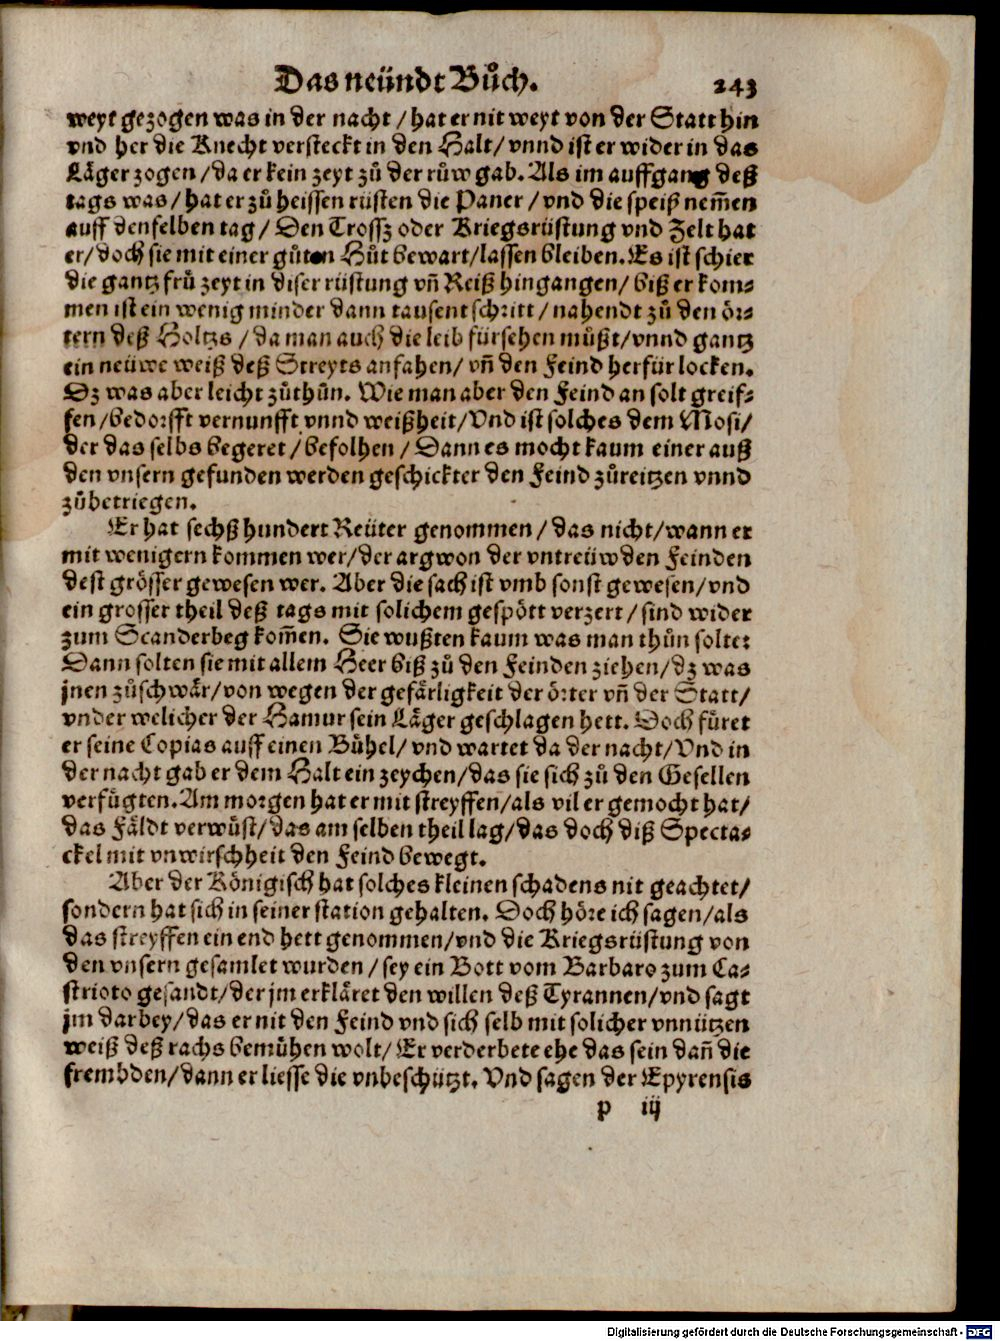 Das neündt Bůch. 243
weyt gezogen was in der nacht / hat er nit weyt von der Statt hin
vnd her die Knecht versteckt in den Halt / vnnd ist er wider in das
Läger zogen / da er kein zeyt zů der růw gab. Als im auffgang deß
tags was / hat er zů heissen rüsten die Paner / vnd die speiß nem̃en
auff denselben tag / Den Trossz oder Kriegsrüstung vnd Zelt hat
er / doch sie mit einer gůten Hůt bewart / lassen bleiben. Es ist schier
die gantz frů zeyt in diser rüstung vñ Reiß hingangen / biß er kom⸗
men ist ein wenig minder dann tausent schritt / nahendt zů den ör⸗
tern deß Holtzs / da man auch die leib fürsehen můßt / vnnd gantz
ein neüwe weiß deß Streyts anfahen / vñ den Feind herfür locken.
Dz was aber leicht zůthůn. Wie man aber den Feind an solt greif⸗
fen / bedorfft vernunfft vnnd weißheit / Vnd ist solches dem Mosi /
der das selbs begeret / befolhen / Dann es mocht kaum einer auß
den vnsern gefunden werden geschickter den Feind zůreitzen vnnd
zůbetriegen.
Er hat sechß hundert Reüter genommen / das nicht / wann er
mit wenigern kommen wer / der argwon der vntreüw den Feinden
dest grösser gewesen wer. Aber die sach ist vmb sonst gewesen / vnd
ein grosser theil deß tags mit solichem gespött verzert / sind wider
zum Scanderbeg kom̃en. Sie wußten kaum was man thůn solte:
Dann solten sie mit allem Heer biß zů den Feinden ziehen / dz was
jnen zůschwär / von wegen der gefärligkeit der örter vñ der Statt /
vnder welicher der Hamur sein Läger geschlagen hett. Doch füret
er seine Copias auff einen Bühel / vnd wartet da der nacht / Vnd in
der nacht gab er dem Halt ein zeychen / das sie sich zů den Gesellen
verfügten. Am morgen hat er mit streyffen / als vil er gemocht hat /
das Fäldt verwüst / das am selben theil lag / das doch diß Specta⸗
ckel mit vnwirschheit den Feind bewegt.
Aber der Königisch hat solches kleinen schadens nit geachtet /
sondern hat sich in seiner station gehalten. Doch höre ich sagen / als
das streyffen ein end hett genommen / vnd die Kriegsrüstung von
den vnsern gesamlet wurden / sey ein Bott vom Barbaro zum Ca⸗
strioto gesandt / der jm erkläret den willen deß Tyrannen / vnd sagt
jm darbey / das er nit den Feind vnd sich selb mit solicher vnnützen
weiß deß rachs bemühen wolt / Er verderbete ehe das sein dañ die
frembden / dann er liesse die vnbeschützt. Vnd sagen der Epyrensis
p iij
Digitalisierung gefördert durch die Deutsche Forschungsgemeinschaft - DFG